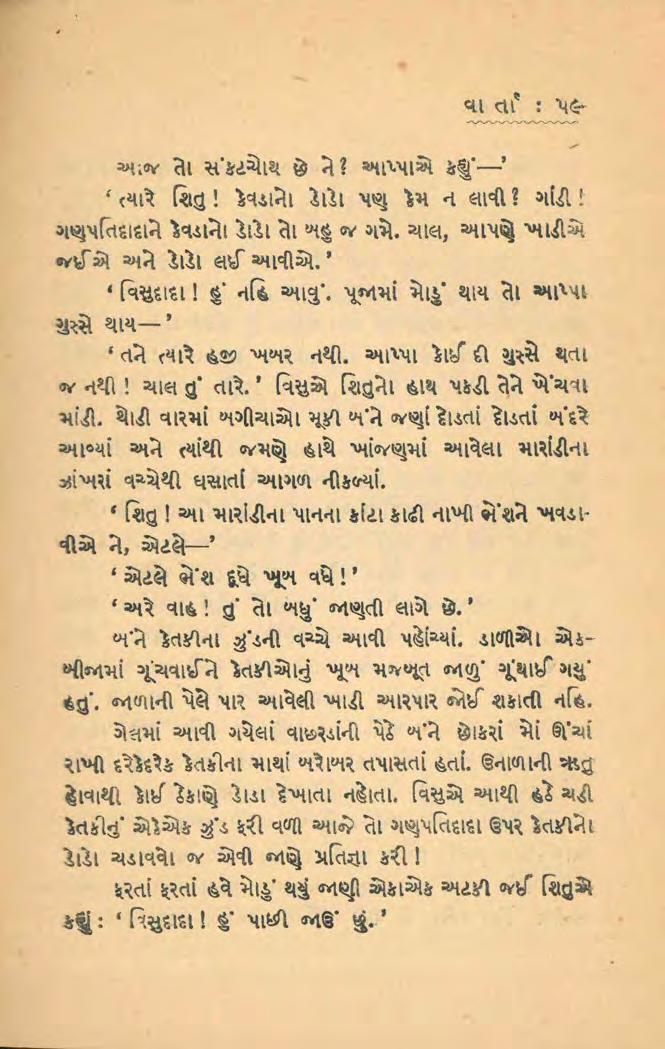 વાર્તા : ૫૯
આજ તો સંકટચોથ છે ને? આપ્પાએ કહ્યું—’
‘ત્યારે શિતુ! કેવડાનો ડોડો પણ કેમ ન લાવી? ગાંડી!
ગણપતિદાદાને કેવડાનો ડોડો તો બહુ જ ગમે. ચાલ, આપણે ખાડીએ
જઈએ અને ડોડો લઈ આવીએ.’
‘વિસુદાદા! હું નહિ આવું. પૂજામાં મોડું થાય તો આપ્પા
ગુસ્સે થાય—’
‘તને ત્યારે હજી ખબર નથી. આપ્પા કોઈ દી ગુસ્સે થતા
જ નથી! ચાલ તું તારે.’ વિસુએ શિતુનો હાથ પકડી તેને ખેંચવા
માંડી. થોડી વારમાં બગીચાઓ મૂકી બંને જણાં દોડતાં દોડતાં બંદરે
આવ્યાં અને ત્યાંથી જમણે હાથે ખાંજણમાં આવેલા મારાંડીના
ઝાંખરાં વચ્ચેથી ઘસાતાં આગળ નીકળ્યાં.
‘શિતુ! આ મારાંડીના પાનના કાંટા કાઢી નાખી ભેંશને ખવડા-
વીએ ને, એટલે—’
‘એટલે ભેંશ દૂધે ખૂબ વધે!’
‘અરે વાહ! તું તો બધું જાણતી લાગે છે.’
બંને કેતકીના ઝુંડની વચ્ચે આવી પહોંચ્યાં. ડાળીઓ એક-
બીજામાં ગૂંચવાઈને કેતકીઓનું ખૂબ મજબૂત જાળું ગૂંથાઈ ગયું
હતું. જાળાની પેલે પાર આવેલી ખાડી આરપાર જોઈ શકાતી નહિ.
ગેલમાં આવી ગયેલાં વાછરડાંની પેઠે બંને છોકરાં મોં ઊંચાં
રાખી દરેકેદરેક કેતકીના માથાં બરોબર તપાસતાં હતાં. ઉનાળાની ઋતુ
હોવાથી કોઈ ઠેકાણે ડોડા દેખાતા નહોતા. વિસુએ આથી હઠે ચડી
કેતકીનું એકેએક ઝુંડ ફરી વળી આજે તો ગણપતિદાદા ઉપર કેતકીનો
ડોડો ચડાવવો જ એવી જાણે પ્રતિજ્ઞા કરી!
ફરતાં ફરતાં હવે મોડું થયું જાણી એકાએક અટકી જઈ શિતુએ
કહ્યું: ‘વિસુદાદા! હું પાછી જાઉં છું.’